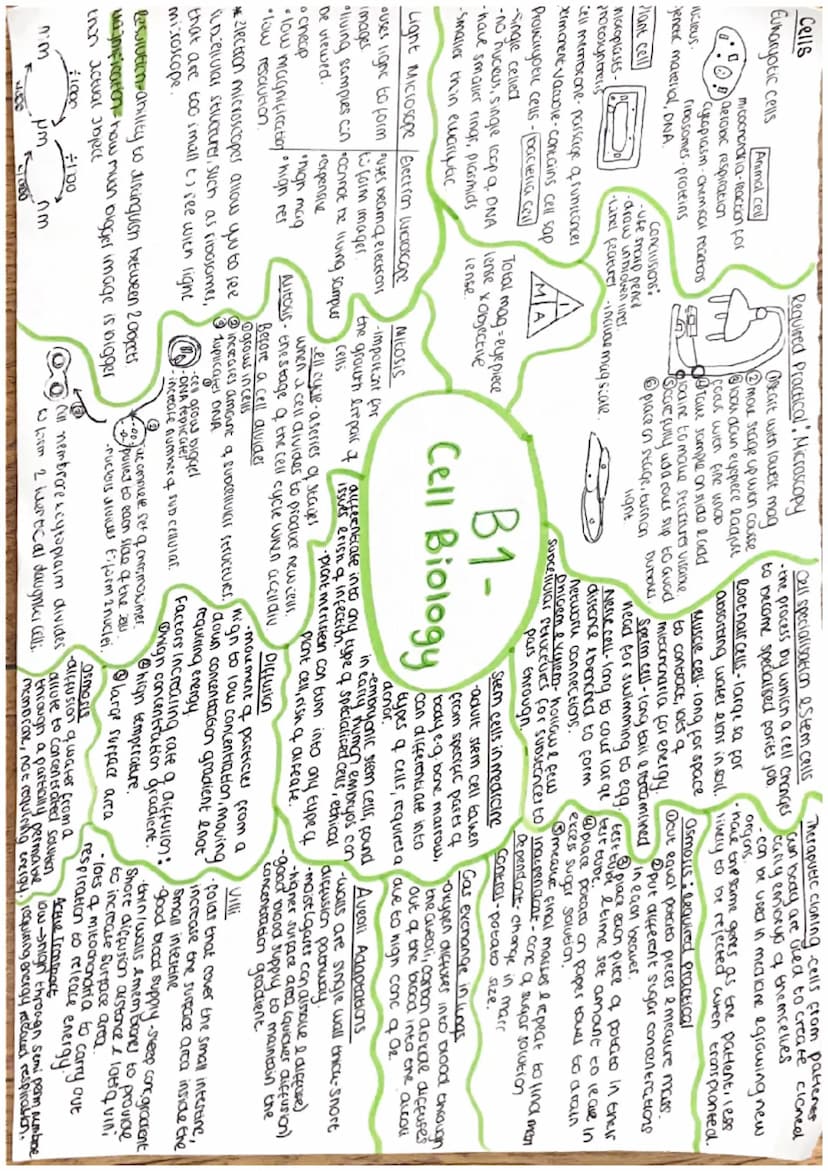 B1-
Cell Biology
Cells
Eukaryotic cells
Animal cell
mitochondria-reaction for
aerobic respiration
cytoplasm-chemical reactions
ribosomes-proteins
nucleus-
genetic material, DNA.
Plant cell
chloroplasts-
photosynthesis
cell membrane-passage of substances
permanent vacuole-contains cell sap
Prokaryotic cells- bacteria cell
-single celled
-no nucleus, single loop of DNA
-have smaller rings, plasmids
-smaller than eukaryotic
Light Microscope
•uses light to form
images
•living samples can
be viewed.
•cheap
•low magnification
•low resolution.
Electron Microscope
•uses beam of electrons
to form images.
•cannot be living samples
•expensive
•high mag
•high res
* Electron microscopes allow you to see
subcellular structures, such as ribosomes,
that are too small to see with light
microscope.
Resolution=ability to distinguish between 2 objects
magnification= how much bigger image is bigger
than actual object
÷1000 ÷1000
mm µm nm
x1000 x1000
Required Practical: Microscopy
①start with lowest mag
②move stage up with coarse
③look down eyepiece & adjust
focus with fine knob
④Take sample on slide & add
iodine to make structures visible.
⑤carefully add cover slip to avoid
bubbles.
⑥place on stage, turn on
light
Conclusions:
-use sharp pencil
-draw unbroken lines.
-label features
-include mag scale.
I
M A
Total mag = eyepiece
lense x objective
lense.
Mitosis
-important for
the growth & repair of
cells
cell cycle-a series of stages
when a cell divides to produce new cells.
Mitosis-the stage of the cell cycle when actually
Before a cell divides
①grows in cells
②increases amount of subcellular structures,
③duplicates DNA
①
-cell grows bigger
-DNA replicates
-increase number of sub cellular.
②
-1 complete set of chromosomes
pulled to each side of the cell
-nucleus divides to form 2 nuclei.
③
Cell membrane & cytoplasm divides
to form 2 identical daughter cells.
Cell specialisation & Stem cells
-the process by which a cell changes
to become specialised for its job.
Root hair cells-large sa for
absorbing water & ions in soil.
Muscle cell-long for space
to contract, lots of
mitochondria for energy.
Sperm cell-long tail & streamlined
head for swimming to egg
Nerve cell-long to cover large
distance & branched to form
network connections.
Phloem & xylem-hollow & few
subcellular structures for substances to
pass through.
Stem cells in medicine
-adult stem cell taken
from specific parts of
body e.g bone marrow,
can differentiate into
types of cells, requires a
donor.
-embryonic stem cells, found
in early human embryos can
differentiate into any type of specialised cells, ethical
issues & risk of infection.
-Plant meristem can turn into any type of
plant cell, risk of disease.
Diffusion
-movement of particles from a
high to low concentration, moving
down concentration gradient & not
requiring energy.
Factors increasing rate of diffusion:
①high concentration gradient.
②high temperature.
③large surface area
Osmosis
-diffusion of water from a
dilute to concentrated solution
through a partially permeable
membrane, not requiring energy.
Therapeutic cloning-cells from patients
own body are used to create cloned
early embryo of themselves
-can be used in medicine & growing new
organs.
-have the same genes as the patient, less
likely to be rejected when transplanted
Osmosis: Required Practical
①cut equal potato pieces & measure mass.
②put different sugar concentrations
in each beaker.
③place each piece of potato in their
test tube & time set amount to leave in
test tube.
④place potato on paper towel to drain
excess sugar solution.
⑤measure final masses & repeat to find mean
Independant-conc of sugar solution
Dependant-change in mass
Control-potato size.
Gas exchange in lungs
-oxygen diffuses into blood through
the alveoli, carbon dioxide diffuses
out of the blood into the alveoli
due to high conc of O2.
Alveoli Adaptations
-walls are single wall thick-short
diffusion pathway.
-moist layer (can dissolve & diffuse)
-higher surface area (quicker diffusion)
-good blood supply to maintain the
concentration gradient.
Villi
-folds that cover the small intestine,
increase the surface area inside the
small intestine
-good blood supply-steep conc gradient
-thin walls & membranes to provide
short diffusion distance & lots of villi
to increase surface area.
-lots of mitochondria to carry out
respiration to release energy.
Active Transport
low-high through semi perm membrane
requiring energy released respiration.